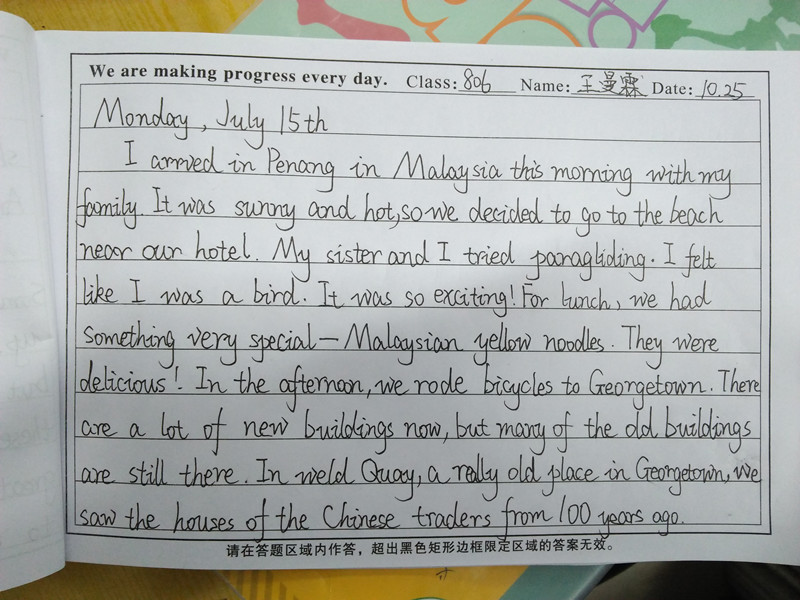 We are making progress every day. Class: 806 Name: 王曼霖 Date: 10.25
Monday, July 15th
I arrived in Penang in Malaysia this morning with my
family. It was sunny and hot, so we decided to go to the beach
near our hotel. My sister and I tried paragliding. I felt
like I was a bird. It was so exciting! For lunch, we had
something very special—Malaysian yellow noodles. They were
delicious! In the afternoon, we rode bicycles to Georgetown. There
are a lot of new buildings now, but many of the old buildings
are still there. In weld Quay, a really old place in Georgetown, we
saw the houses of the Chinese traders from 100 years ago.
请在答题区域内作答，超出黑色矩形边框限定区域的答案无效。